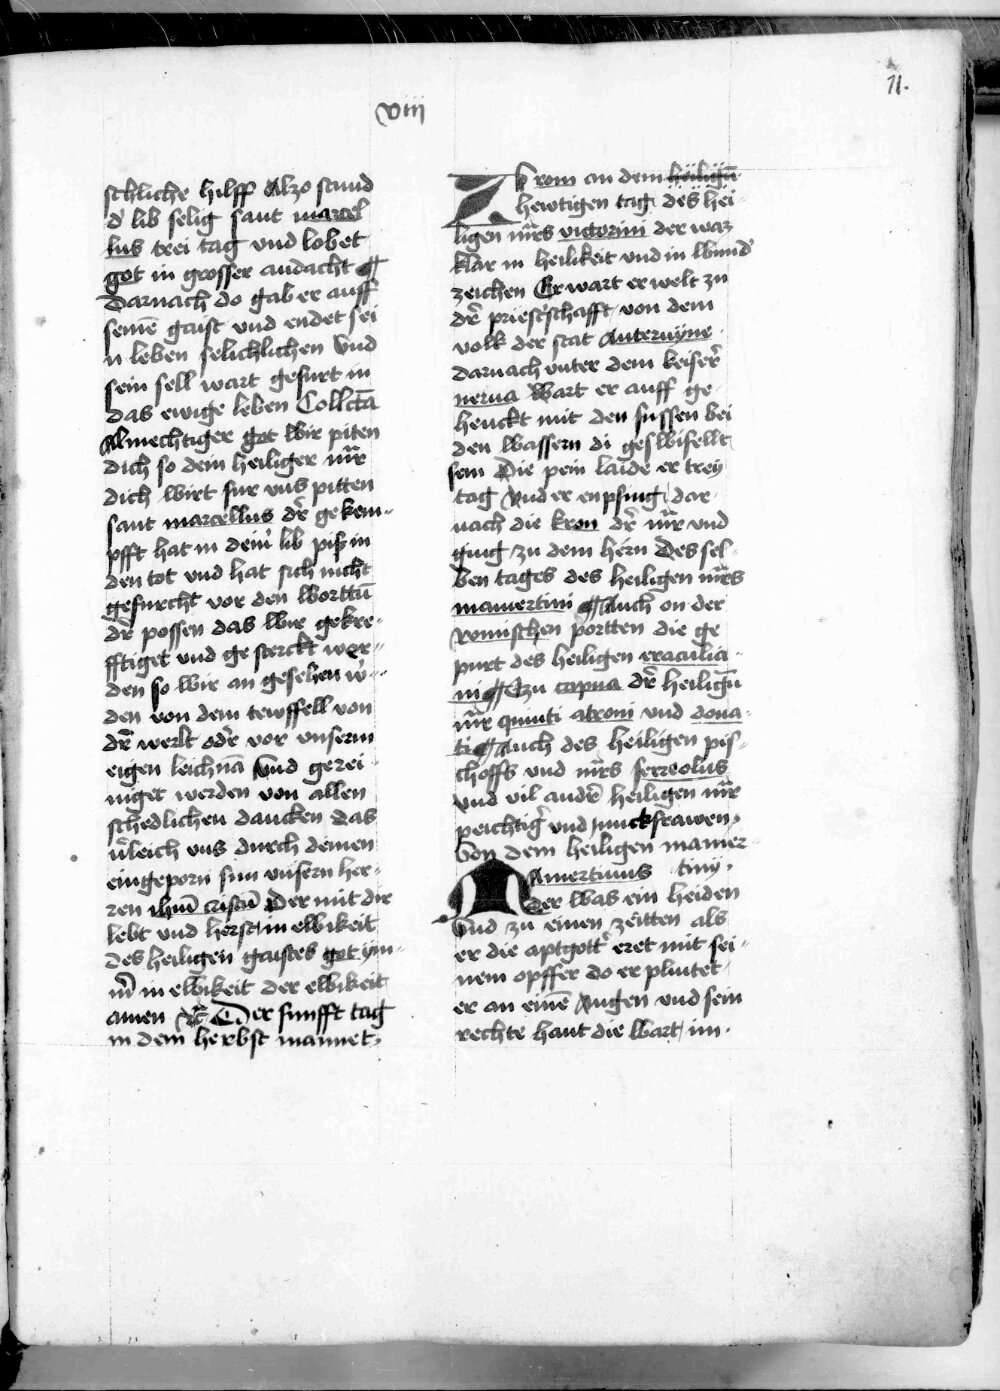 11.
viii
schliche hilff Alzo stund
d' lib selig sant marcel
lus trei tag vnd lobet
got in grosser andacht ¶
Darnach do gab er auff
seinē gaist vnd endet sei
n leben selichlichen Vnd
sein sell wart gefurt in
das ewige leben Collcta
Almechtiger got wir piten
dich so dein heiliger mr̄
dich wirt fur vns pitten
sant marcellus dr̄ gekem-
pfft hat in deim lib piß in
den tot vnd hat sich nicht
gefurcht vor den worttn̄
dr̄ possen das wir gekre-
fftiget vnd gesterckt wer-
den so wir an gesehen w-
den von dem tewffell von
dr̄ werlt odr̄ vor vnserm
eigen leichnā Vnd gerei-
niget werden von allen
schedlichen dancken das
v̄leich vns durch deinen
eingeporn sun vnsern her-
ren ihm̄ cristū Der mit dir
lebt vnd herst in ewikeit
des heiligen gaistes got ym-
m̄ in ewikeit der ewikeit
amen ⁊c̄ Der funfft tag
in dem herbst mannet.
Zv rom an dem heilign̄
hewtigen tag des hei-
ligen mr̄s victorini der waz
klar in heilikeit vnd in wund'
zeichen Er wart erwelt zu
dr̄ priest'schafft von dem
volk der stat Anternyne
darnach vnter dem keiser̄
nerua Wart er auff ge-
henckt mit den fussen bei
den wassern di geswifellt
sein Die pein laide er trey
tag Vnd er enpfing dar-
nach die kron dr̄ mr̄r vnd
ging zu dem hern Des sel-
ben tages des heiligen mr̄s
mamertini ¶ Auch on der
romischen portten die ge
purt des heiligen eraculia-
ni ¶ Czu capua dr̄ heilign̄
mr̄r quinti atroni vnd dona-
ti ¶ Auch des heiligen pis-
choffs vnd mr̄s ferreolus
vnd vil andr̄ heiligen mr̄r
peichtig̛ vnd junckfrawen.
Von dem heiligen mamer-
MAmertinus tiny.
der was ein heiden
vnd zu einen zeitten als
er die aptgott' eret mit sei-
nem opffer do er plintet
er an einē Augen vnd sein
rechte hant die wart im.